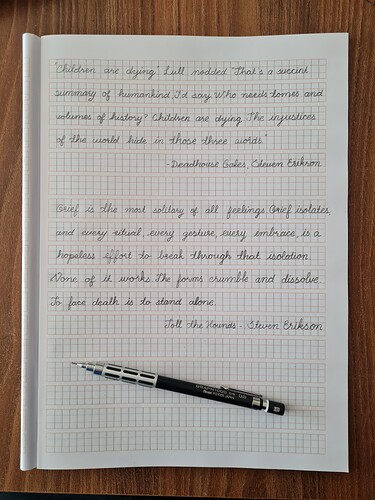 "Children are dying." Lull nodded "That's a succint
summary of humankind, I'd say. Who needs tomes and
volumes of history? Children are dying. The injustices
of the world hide in those three words."
-Deadhouse Gates, Steven Erikson
Grief is the most solitary of all feelings. Grief isolates
and every ritual, every gesture, every embrace, is a
hopeless effort to break through that isolation.
None of it works. The forms crumble and dissolve.
To face death is to stand alone.
Toll the Hounds - Steven Erikson